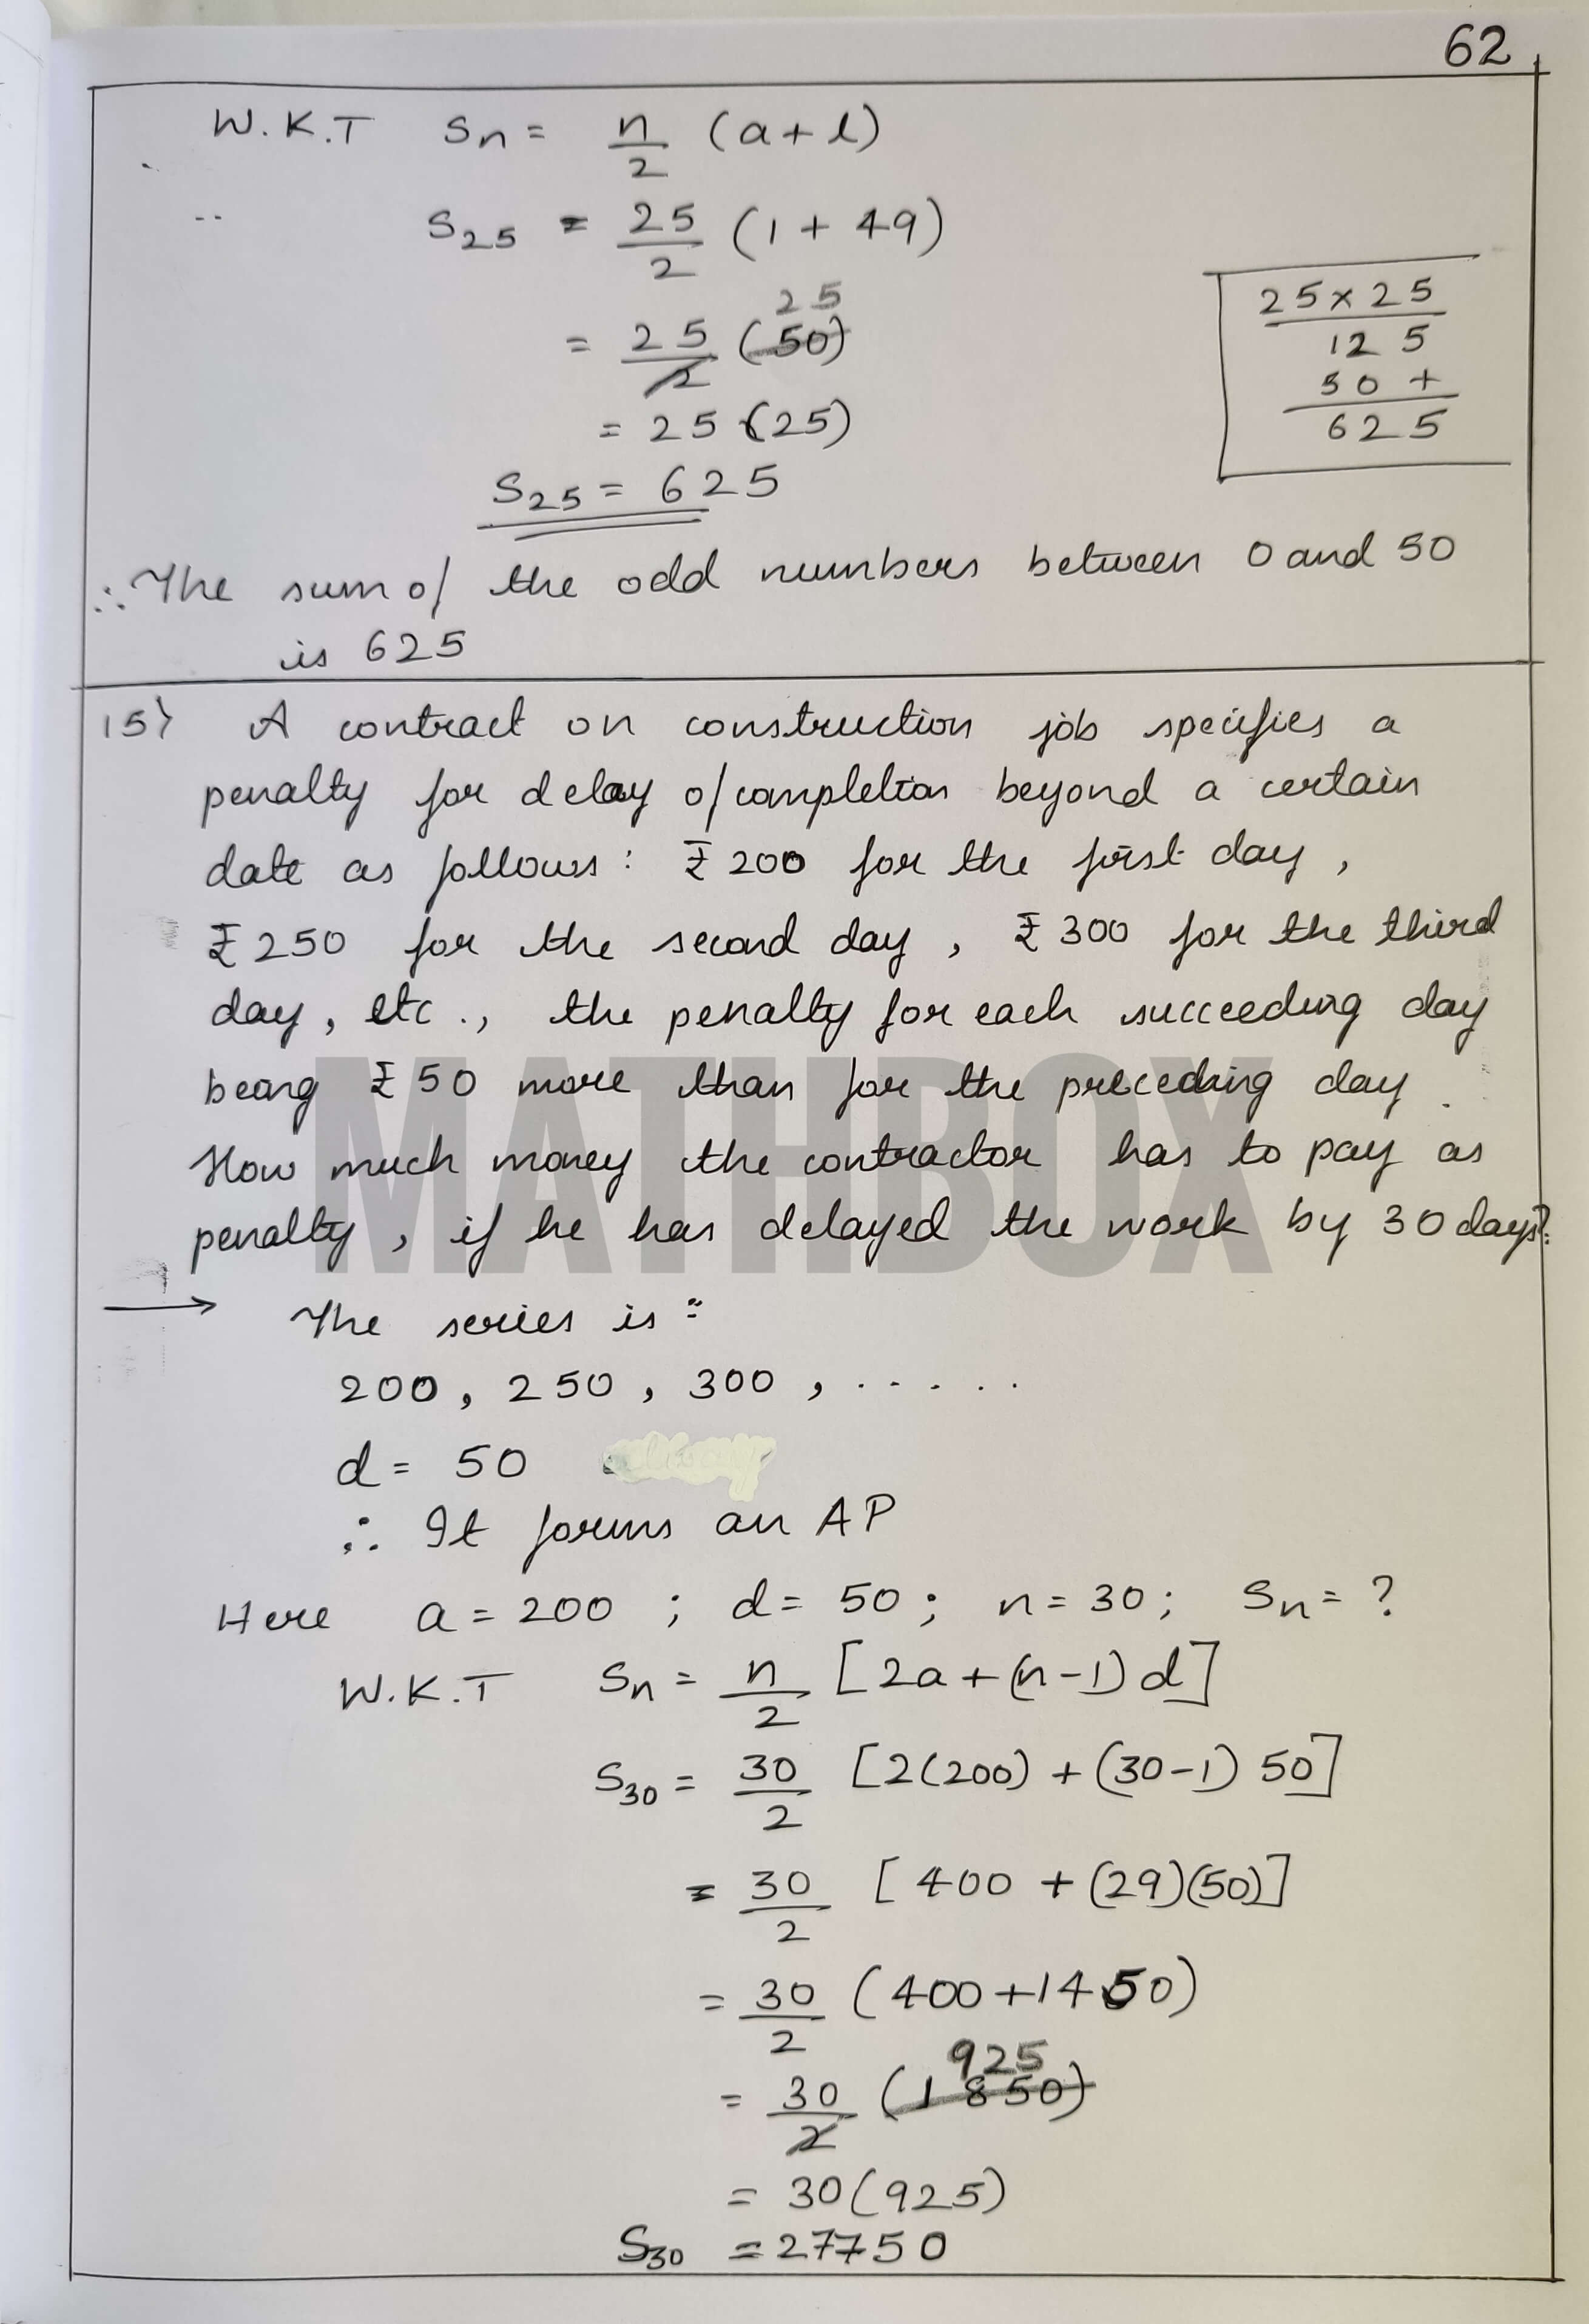 62
W.K.T Sn = n/2 (a+l)
S25 = 25/2 (1 + 49)
25
= 25/2 (50)
= 25 (25)
S25 = 625
25 x 25
125
50 +
625
∴ The sum of the odd numbers between 0 and 50
is 625
15) A contract on construction job specifies a
penalty for delay of completion beyond a certain
date as follows: ₹ 200 for the first day,
₹ 250 for the second day, ₹ 300 for the third
day, etc., the penalty for each succeeding day
being ₹ 50 more than for the preceding day.
How much money the contractor has to pay as
penalty, if he has delayed the work by 30 days?
MATHBOX
→ The series is :
200, 250, 300, ......
d = 50
∴ It forms an AP
Here a = 200 ; d = 50 ; n = 30 ; Sn = ?
W.K.T Sn = n/2 [2a + (n-1) d]
S30 = 30/2 [2(200) + (30-1) 50]
= 30/2 [400 + (29)(50)]
= 30/2 (400 + 1450)
925
= 30/2 (1850)
= 30(925)
S30 = 27750